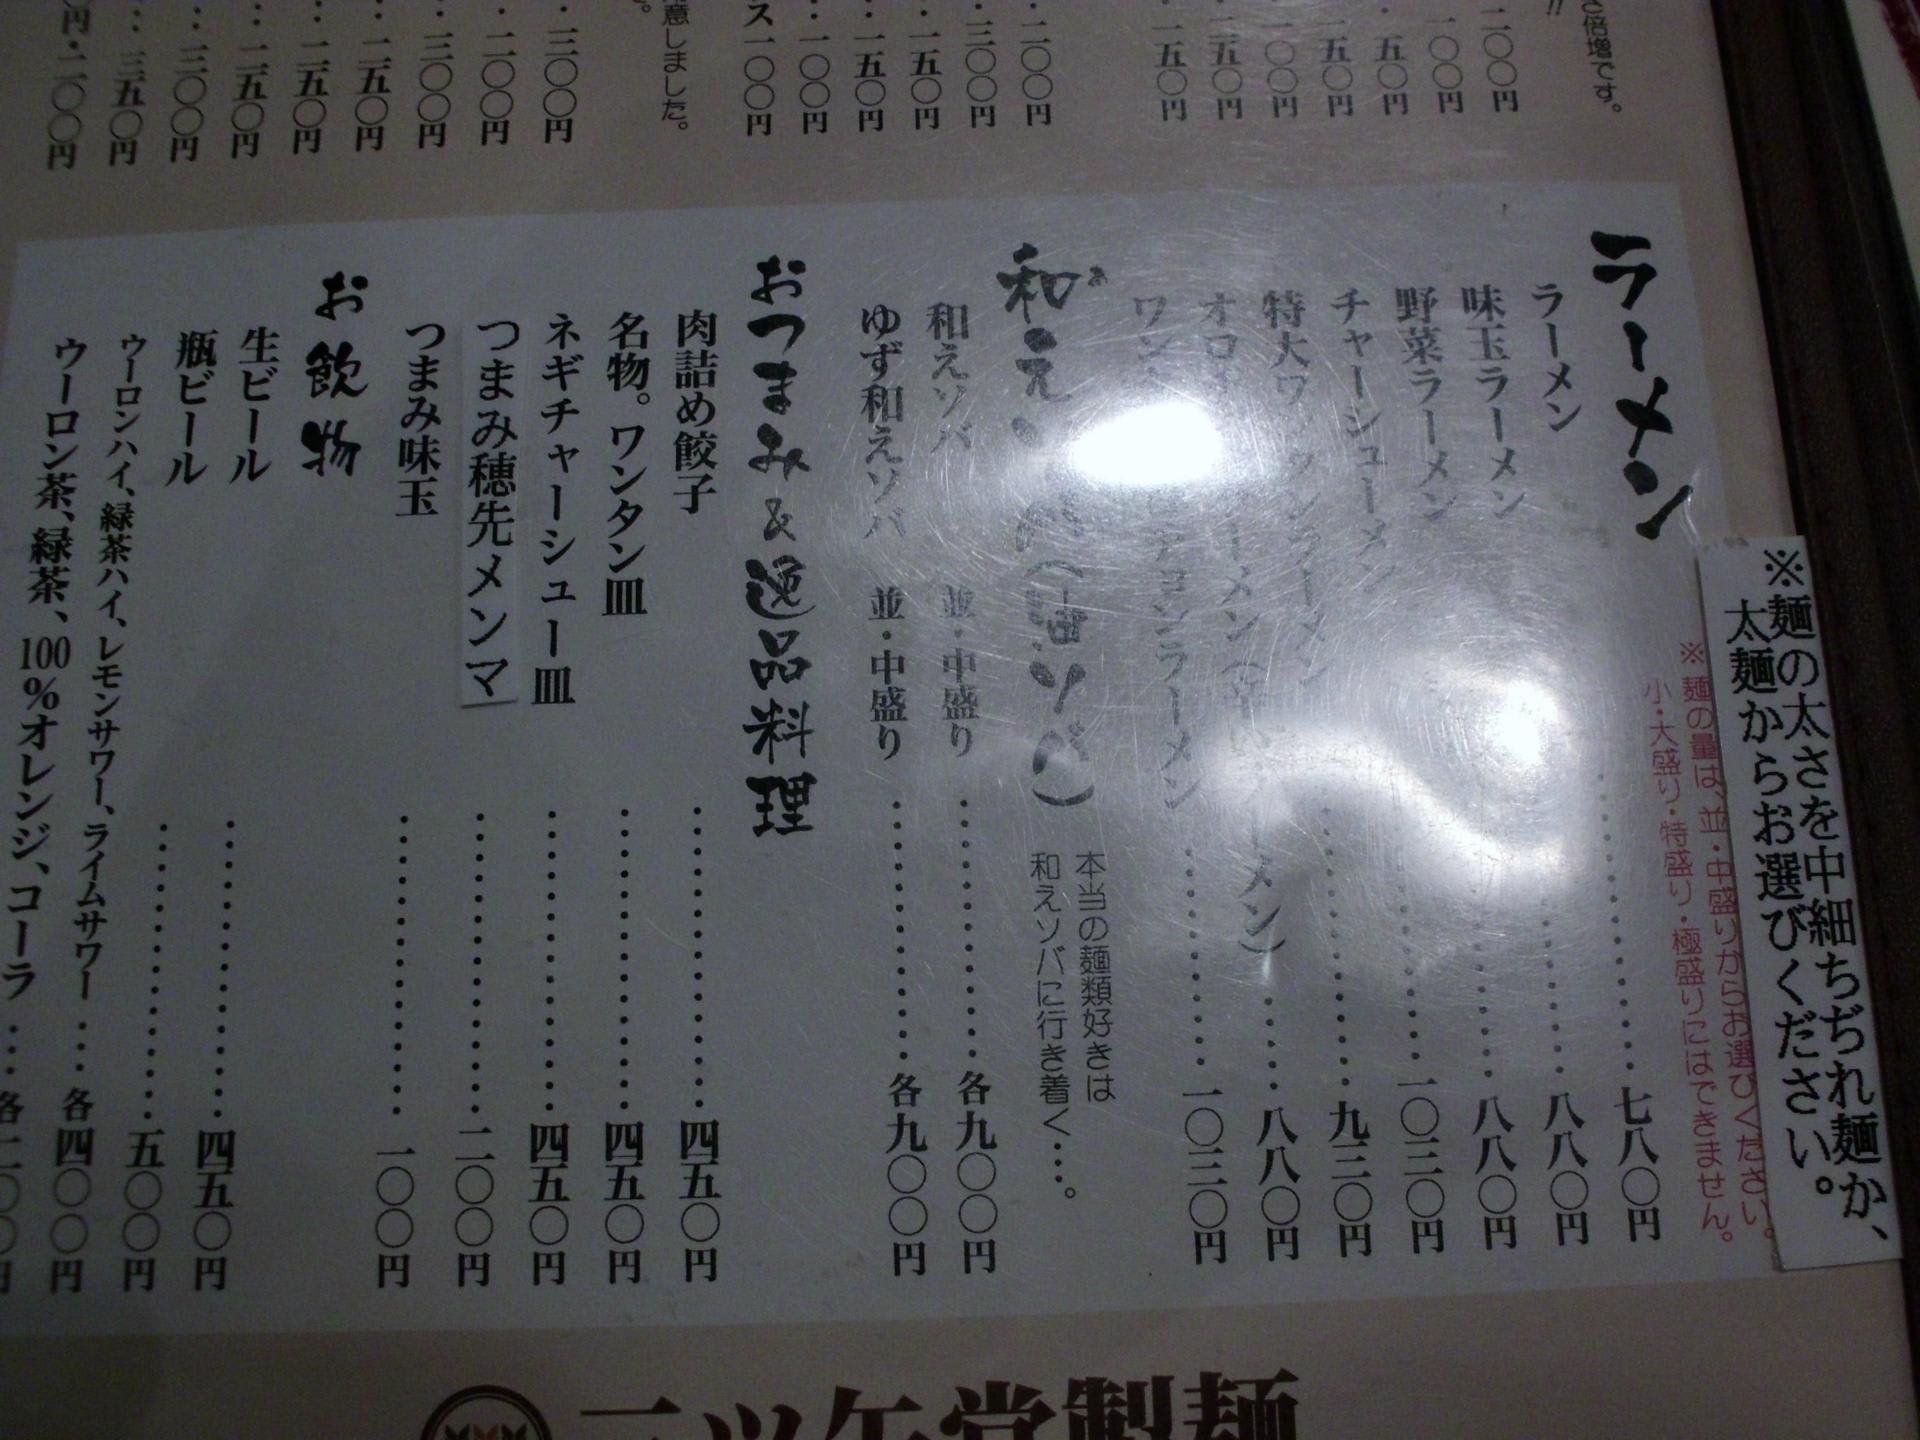 さ倍増です。
!!
二〇〇円
一〇〇円
五〇円
一五〇円
一〇〇円
二五〇円
一五〇円
二〇〇円
三〇〇円
一五〇円
一五〇円
一〇〇円
ス一〇〇円
意しました。
三〇〇円
二〇〇円
三〇〇円
二五〇円
二五〇円
二五〇円
三〇〇円
三五〇円
円・二〇〇円
※麺の太さを中細ちぢれ麺か、
太麺からお選びください。
ラーメン
※麺の量は、並・中盛りからお選びください。
小・大盛り・特盛り・極盛りにはできません。
ラーメン 七八〇円
味玉ラーメン 八八〇円
野菜ラーメン 八八〇円
チャーシューメン 一〇三〇円
特大ワンタンラーメン 九三〇円
オロ ーメン メン） 八八〇円
ワン チョンラーメン 一〇三〇円
和え （油ソバ）
本当の麺類好きは
和えソバに行き着く…。
和えソバ 並・中盛り 各九〇〇円
ゆず和えソバ 並・中盛り 各九〇〇円
おつまみ＆逸品料理
肉詰め餃子 四五〇円
名物。ワンタン皿 四五〇円
ネギチャーシュー皿 四五〇円
つまみ穂先メンマ 二〇〇円
つまみ味玉 一〇〇円
お飲物
生ビール 四五〇円
瓶ビール 五〇〇円
ウーロンハイ、緑茶ハイ、レモンサワー、ライムサワー 各四〇〇円
ウーロン茶、緑茶、100%オレンジ、コーラ 各二〇〇円
三ツ矢堂製麺